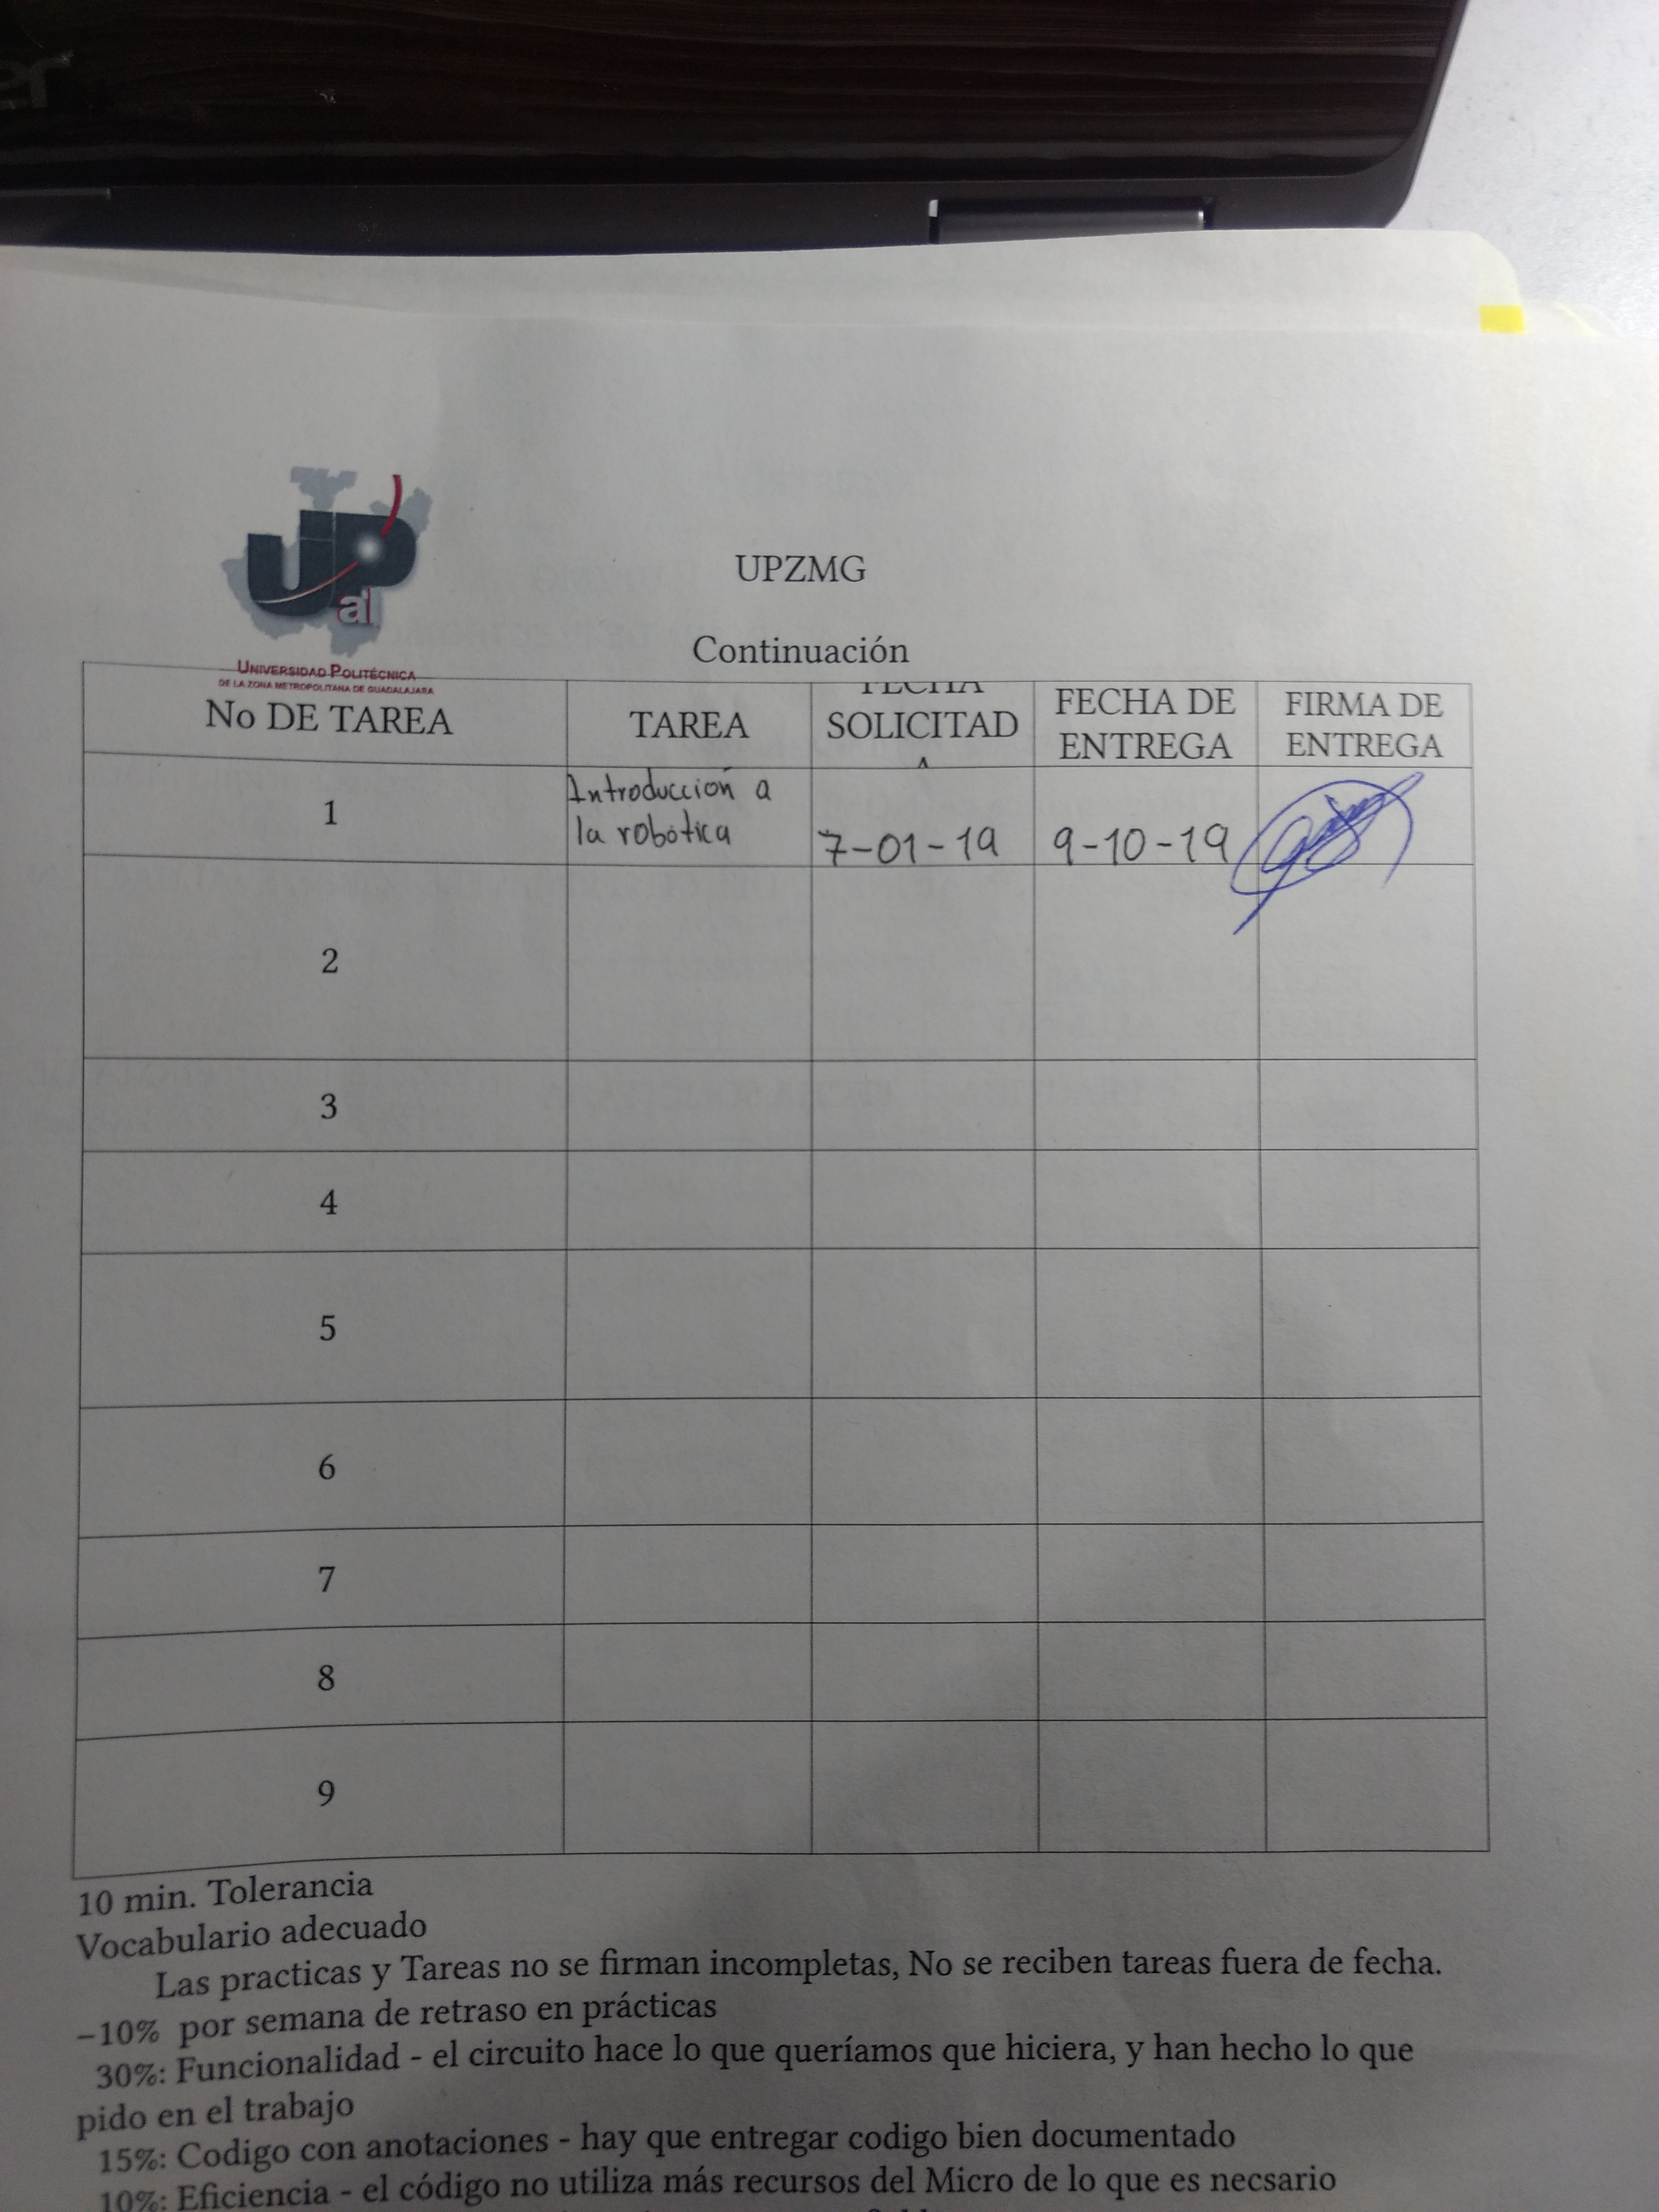 er
UP
al
UNIVERSIDAD POLITÉCNICA
DE LA ZONA METROPOLITANA DE GUADALAJARA
UPZMG
Continuación
No DE TAREA
TAREA
FECHA
SOLICITAD
A
FECHA DE
ENTREGA
FIRMA DE
ENTREGA
1
Introducción a
la robótica
7-01-19
9-10-19
2
3
4
5
6
7
8
9
10 min. Tolerancia
Vocabulario adecuado
Las practicas y Tareas no se firman incompletas, No se reciben tareas fuera de fecha.
–10% por semana de retraso en prácticas
30%: Funcionalidad - el circuito hace lo que queríamos que hiciera, y han hecho lo que
pido en el trabajo
15%: Codigo con anotaciones - hay que entregar codigo bien documentado
10%: Eficiencia - el código no utiliza más recursos del Micro de lo que es necsario